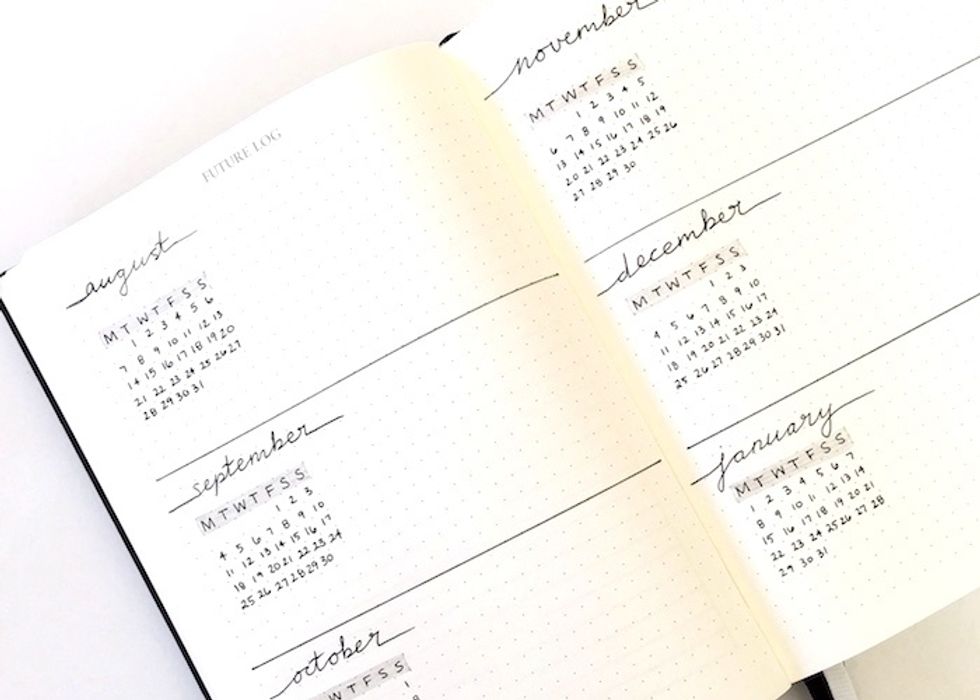 FUTURE LOG
august
M T W T F S S
1 2 3 4 5 6
7 8 9 10 11 12 13
14 15 16 17 18 19 20
21 22 23 24 25 26 27
28 29 30 31
september
M T W T F S S
1 2 3
4 5 6 7 8 9 10
11 12 13 14 15 16 17
18 19 20 21 22 23 24
25 26 27 28 29 30
october
M T W T F S S
1
8
november
M T W T F S S
1 2 3 4 5
6 7 8 9 10 11 12
13 14 15 16 17 18 19
20 21 22 23 24 25 26
27 28 29 30
december
M T W T F S S
1 2 3
4 5 6 7 8 9 10
11 12 13 14 15 16 17
18 19 20 21 22 23 24
25 26 27 28 29 30 31
january
M T W T F S S
1 2 3 4 5 6 7
8 9 10 11 12 13 14
15 16 17 18 19 20 21
22 23 24 25 26 27 28
29 30 31